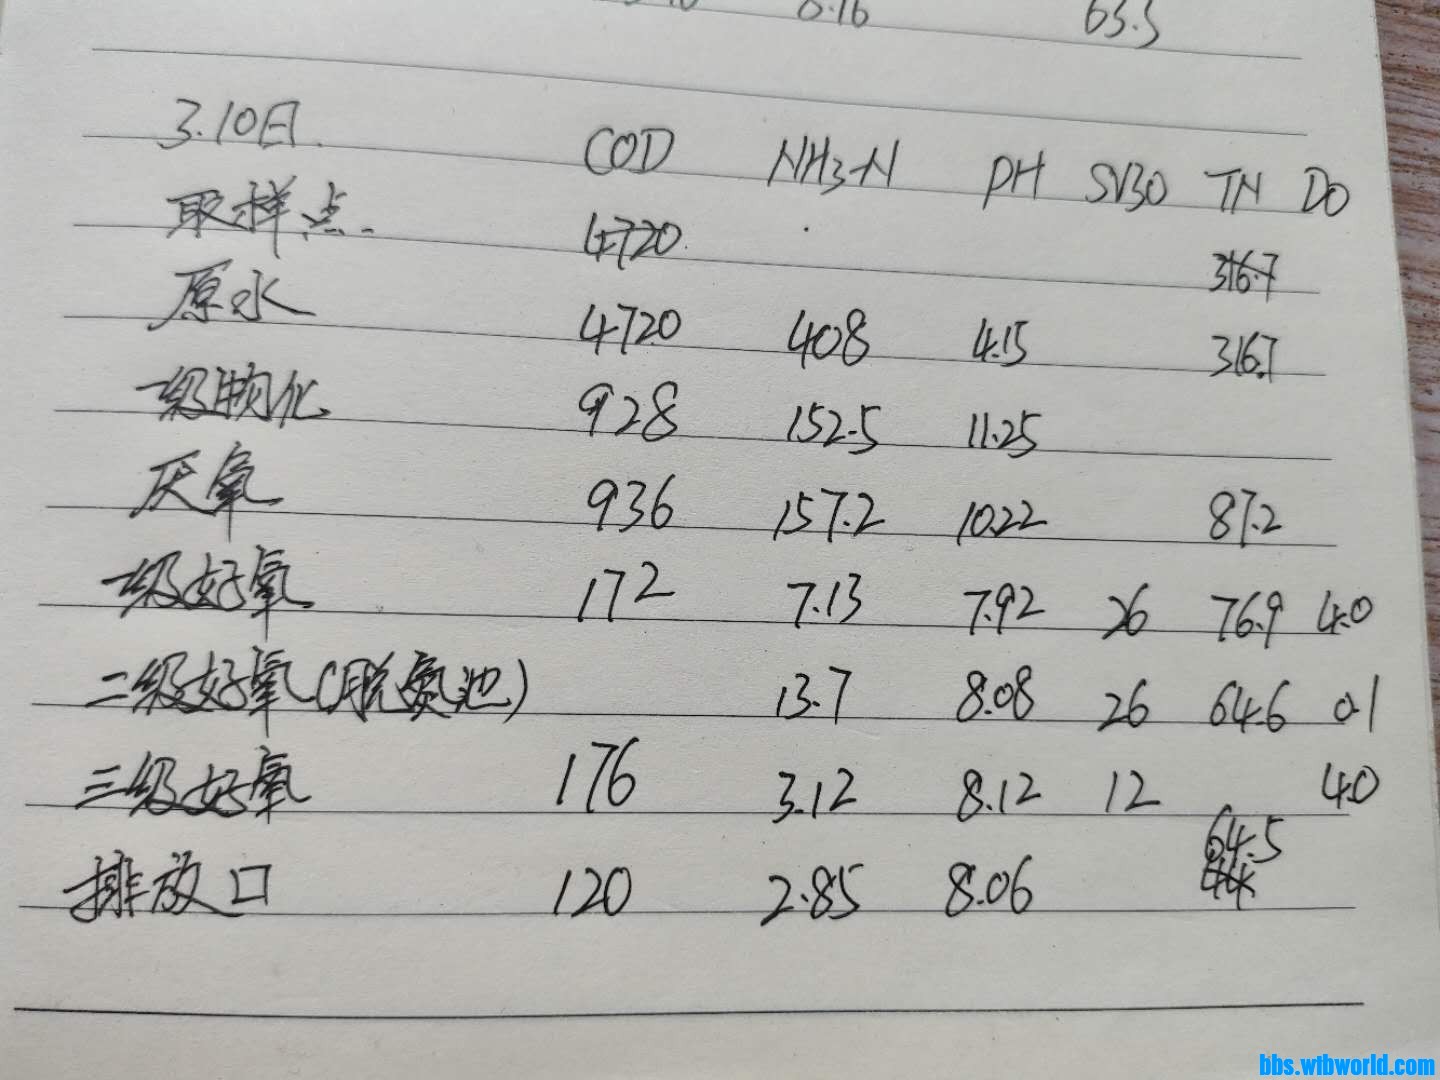 8.16 63.5
3.10日. COD NH3-N PH SV30 TN DO
取样点. 4720. 316.7
原水 4720 408 4.15 316.7
一级物化 928 152.5 11.25
厌氧 936 157.2 10.22 87.2
一级好氧 172 7.13 7.92 26 76.9 4.0
二级好氧(脱氮池) 13.7 8.08 26 64.6 0.1
三级好氧 176 3.12 8.12 12 4.0
64.5
排放口 120 2.85 8.06
bbs.wtbworld.com